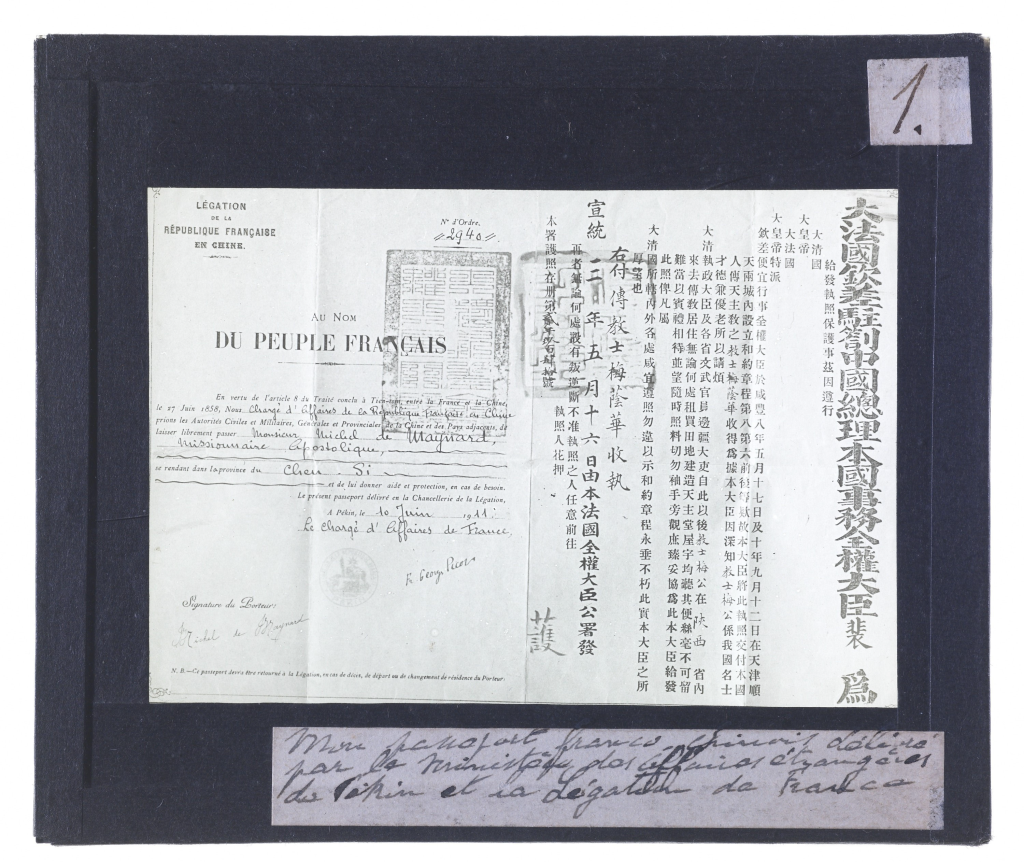 1.
LÉGATION
DE LA
RÉPUBLIQUE FRANÇAISE
EN CHINE.
N° d'Ordre.
2940.
AU NOM
DU PEUPLE FRANÇAIS
En vertu de l'article 8 du Traité conclu à Tien-tsin, entre la France et la Chine,
le 27 Juin 1858, Nous, Chargé d'Affaires de la République Française en Chine
prions les Autorités Civiles et Militaires, Générales et Provinciales de la Chine et des Pays adjacents, de
laisser librement passer Monsieur Michel de Maynard,
Missionnaire Apostolique,
se rendant dans la province du Chen-Si
et de lui donner aide et protection, en cas de besoin.
Le présent passeport délivré en la Chancellerie de la Légation,
A Pékin, le 10 Juin 1911.
Le Chargé d'Affaires de France,
Signature du Porteur:
Michel de Maynard
N. B.—Ce passeport devra être retourné à la Légation, en cas de décès, de départ ou de changement de résidence du Porteur.
大法國欽差駐劄中國總理本國事務全權大臣裴 爲
給發執照保護事茲因遵行
大清國
大皇帝
大法國
大皇帝特派
欽差便宜行事全權大臣於咸豐八年五月十七日及十年九月十二日在天津順
天兩城內設立和約章程第八第六前後等款故本大臣將此執照交付本國
人傳天主敎之敎士梅蔭華收得爲據本大臣因深知敎士梅公係我國名士
才德兼優老所以請煩
大清執政大臣及各省文武官員邊疆大吏自此以後敎士梅公在陝西省內
來去傳敎居住無論何處租買田地建造天主堂屋宇均聽其便絲毫不可留
難當以賓禮相待並望隨時照料切勿袖手旁觀庶臻妥協爲此本大臣給發
此照俾凡屬
大清國所轄內外各處咸宜遵照勿違以示和約章程永垂不朽此實本大臣之所
厚望也
右付傳敎士梅蔭華收執
宣統三年五月十六日由本法國全權大臣公署發
再者無論何處設有叛逆斷不准執照之人任意前往
執照人花押
護
Mon passeport franco-chinois délivré
par le Ministère des affaires étrangères
de Pékin et la Légation de France